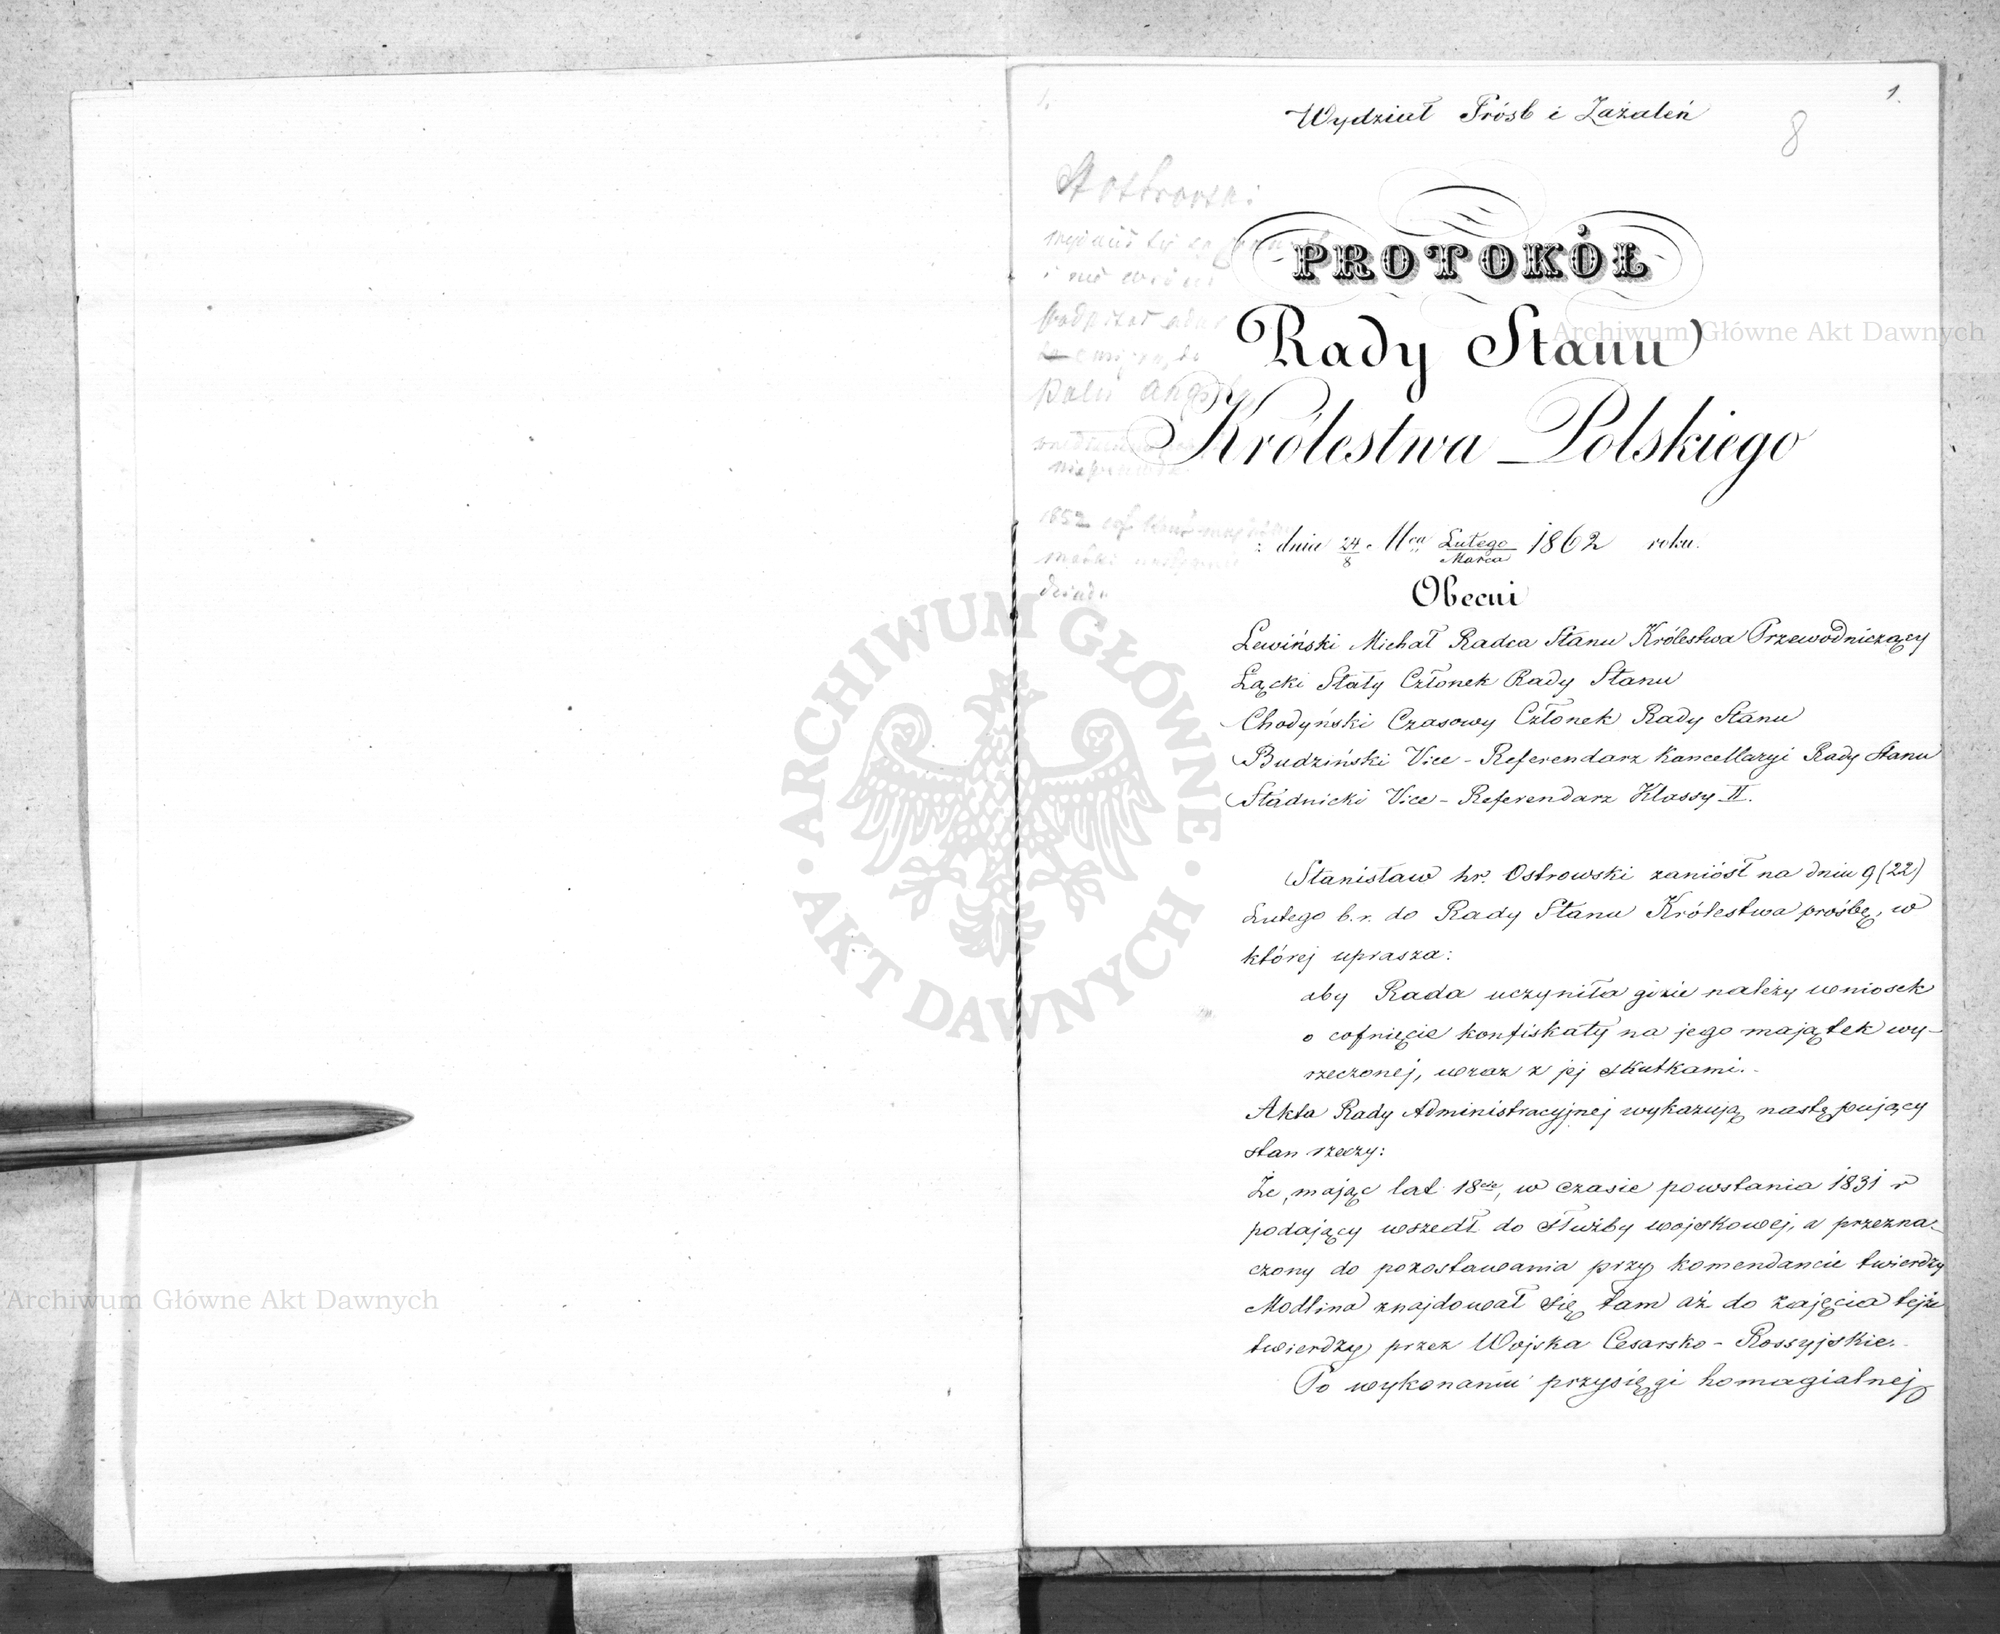 1.
Wydział Próśb i Zażaleń
8
PROTOKÓŁ
Rady Stanu
Królestwa Polskiego
dnia 24/8 Mca Lutego/Marca 1862 roku.
Obecni
Lewiński Michał Radca Stanu Królestwa Przewodniczący
Łącki Stały Członek Rady Stanu
Chodyński Czasowy Członek Rady Stanu
Budziński Vice-Referendarz Kancellaryi Rady Stanu
Stadnicki Vice-Referendarz Klassy II.
Stanisław hr. Ostrowski zaniósł na dniu 9 (22)
Lutego b.r. do Rady Stanu Królestwa prośbę, w
której uprasza:
aby Rada uczyniła gdzie należy wniosek
o cofnięcie konfiskaty na jego majątek wy-
rzeczonej, wraz z jej skutkami.-
Akta Rady Administracyjnej wykazują następujący
stan rzeczy:
Że, mając lat 18cie, w czasie powstania 1831 r
podający wszedł do służby wojskowej, a przezna-
czony do pozostawania przy komendancie twierdzy
Modlina znajdował się tam aż do zajęcia tejże
twierdzy przez Wojska Cesarsko-Rossyjskie.-
Po wykonaniu przysięgi homagialnej
1852
ARCHIWUM GŁÓWNE AKT DAWNYCH
Archiwum Główne Akt Dawnych
Archiwum Główne Akt Dawnych